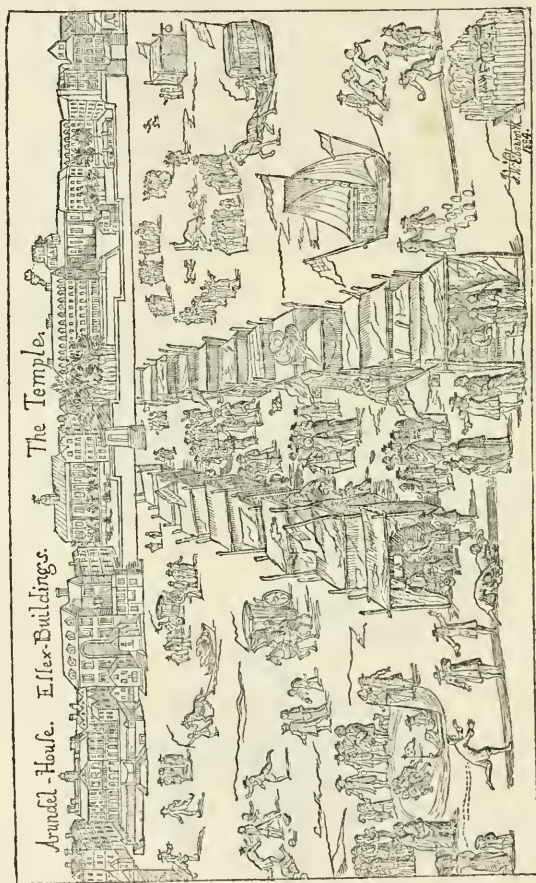 Arundel-Houſe. Eſſex-Buildings. The Temple.